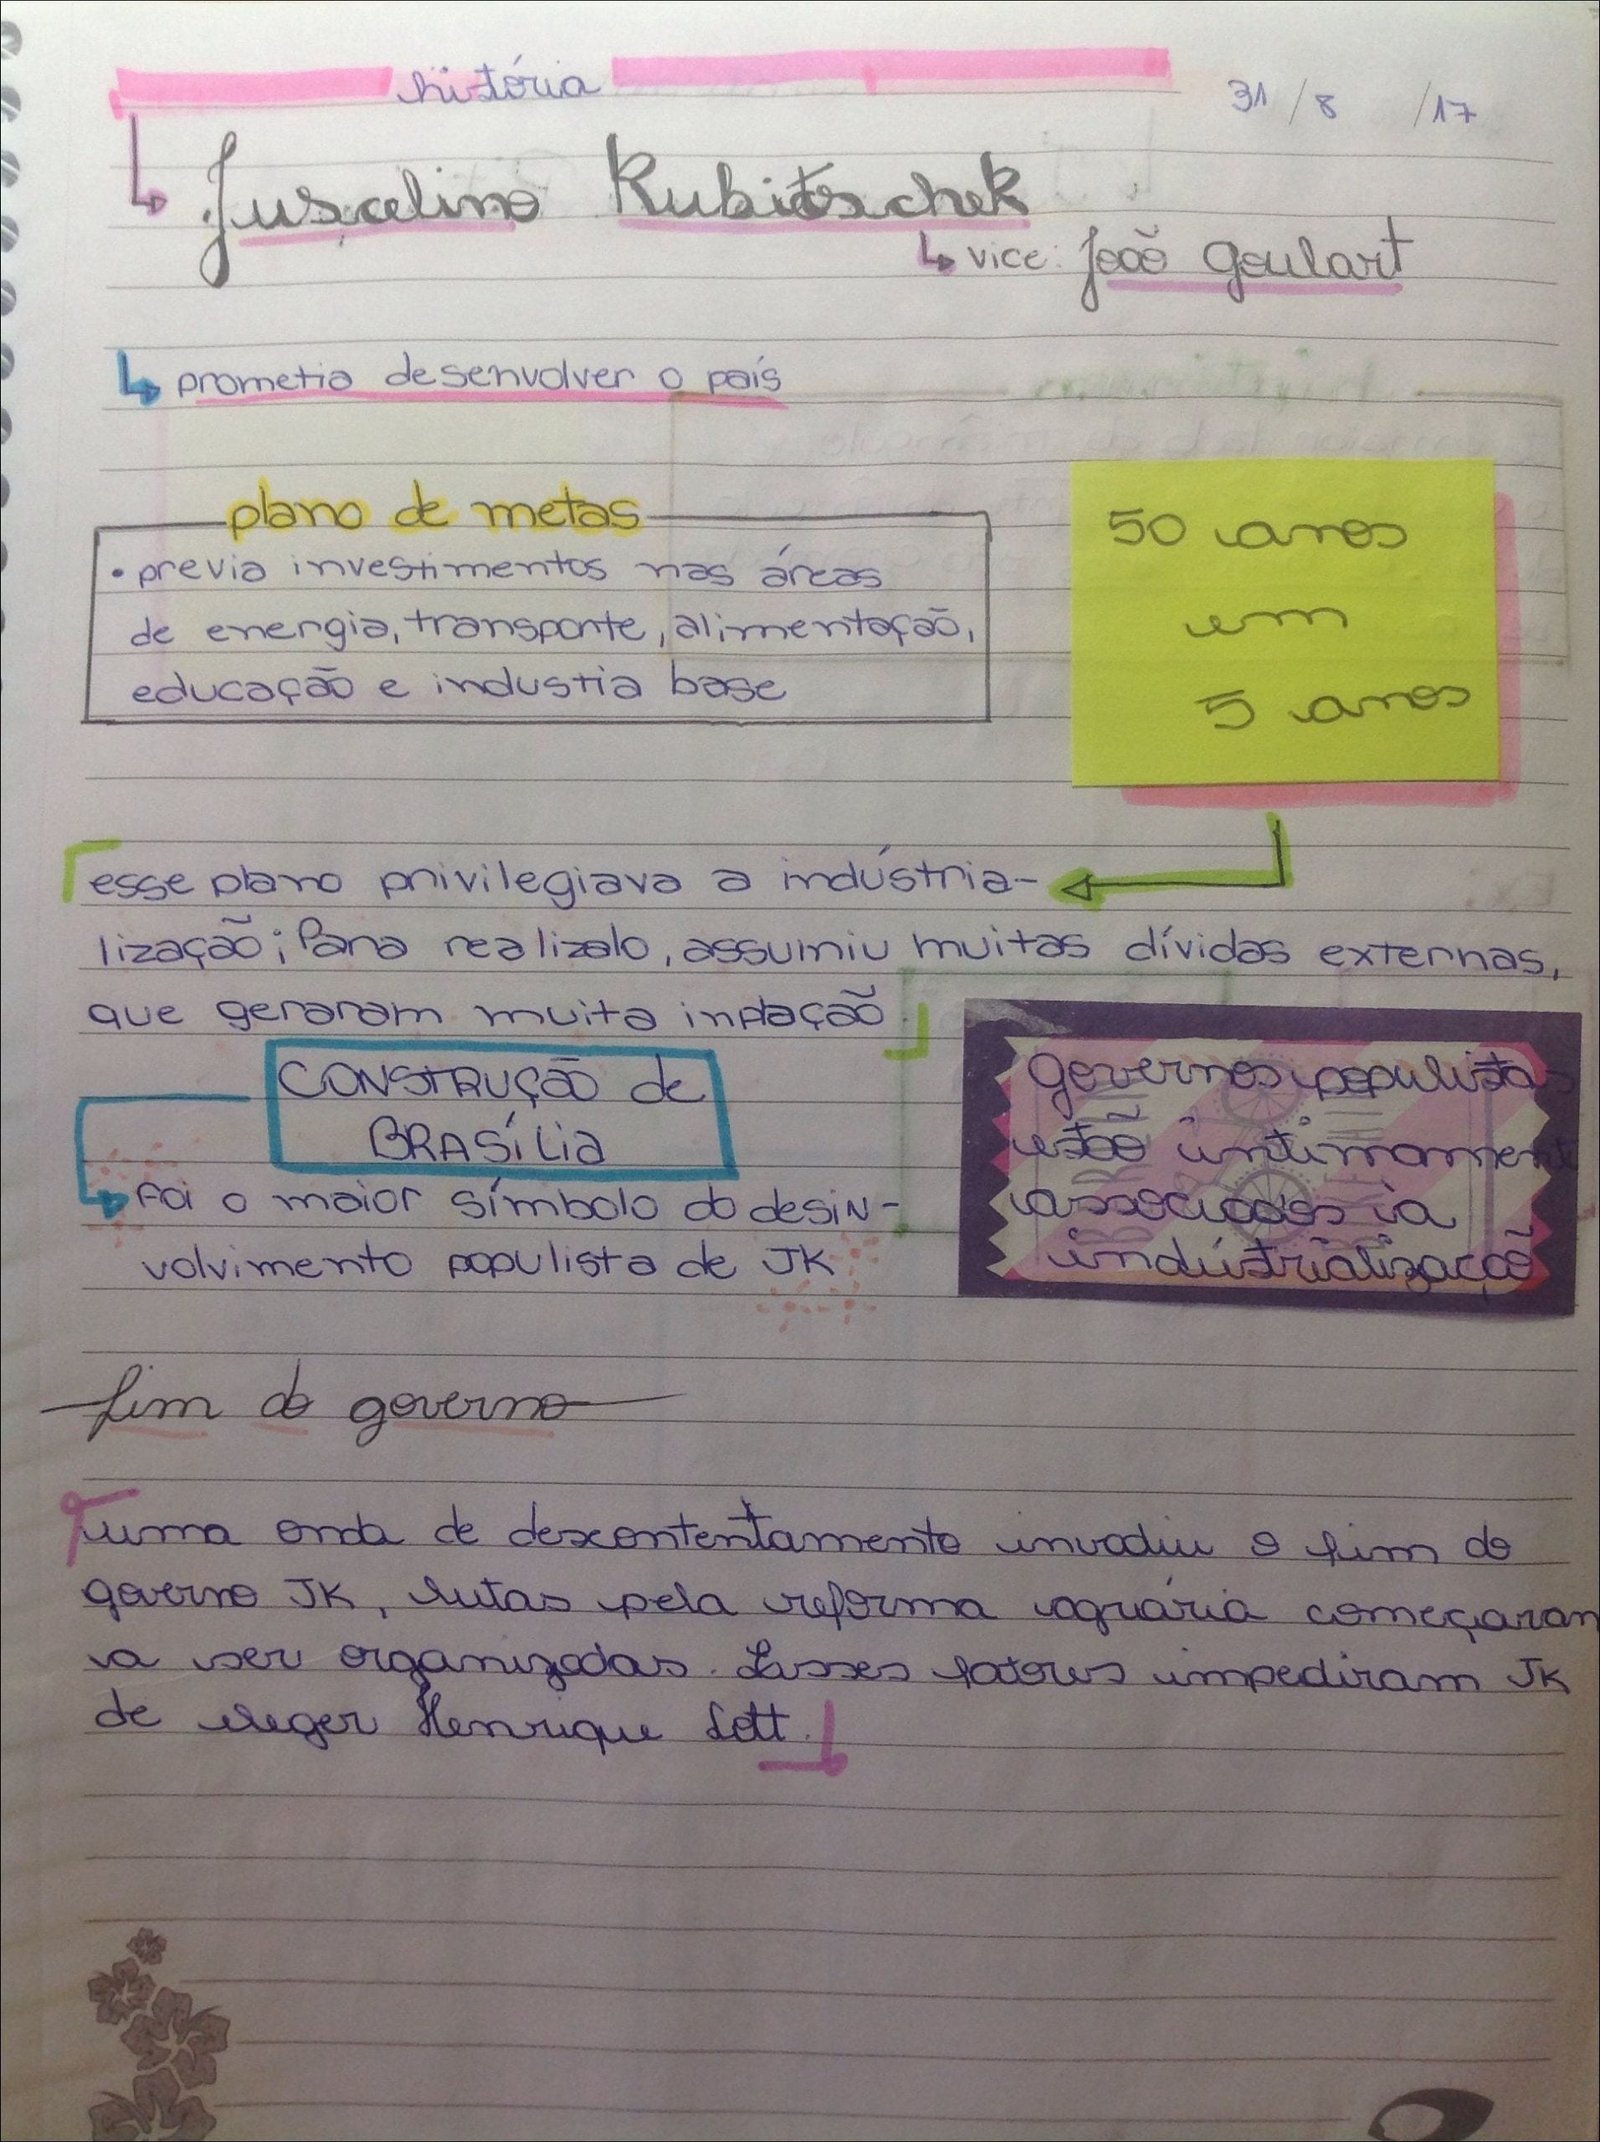 história
31/8/17
Juscelino Kubitschek
vice: João Goulart
prometia desenvolver o país
plano de metas
• previa investimentos nas áreas
de energia, transporte, alimentação,
educação e industia base
50 anos
em
5 anos
esse plano privilegiava a indústria-
lização; Para realizalo, assumiu muitas dívidas externas,
que geraram muita inflação
CONSTRUÇÃO de
BRASÍLIA
foi o maior símbolo do desin-
volvimento populista de JK
governos populistas
estão intimament
associados a
industrialização
fim do governo
uma onda de descontentamento invadiu o fim do
governo JK, lutas pela reforma agrária começaram
a ser organizadas. Esses fatores impediram JK
de eleger Henrique Lott.